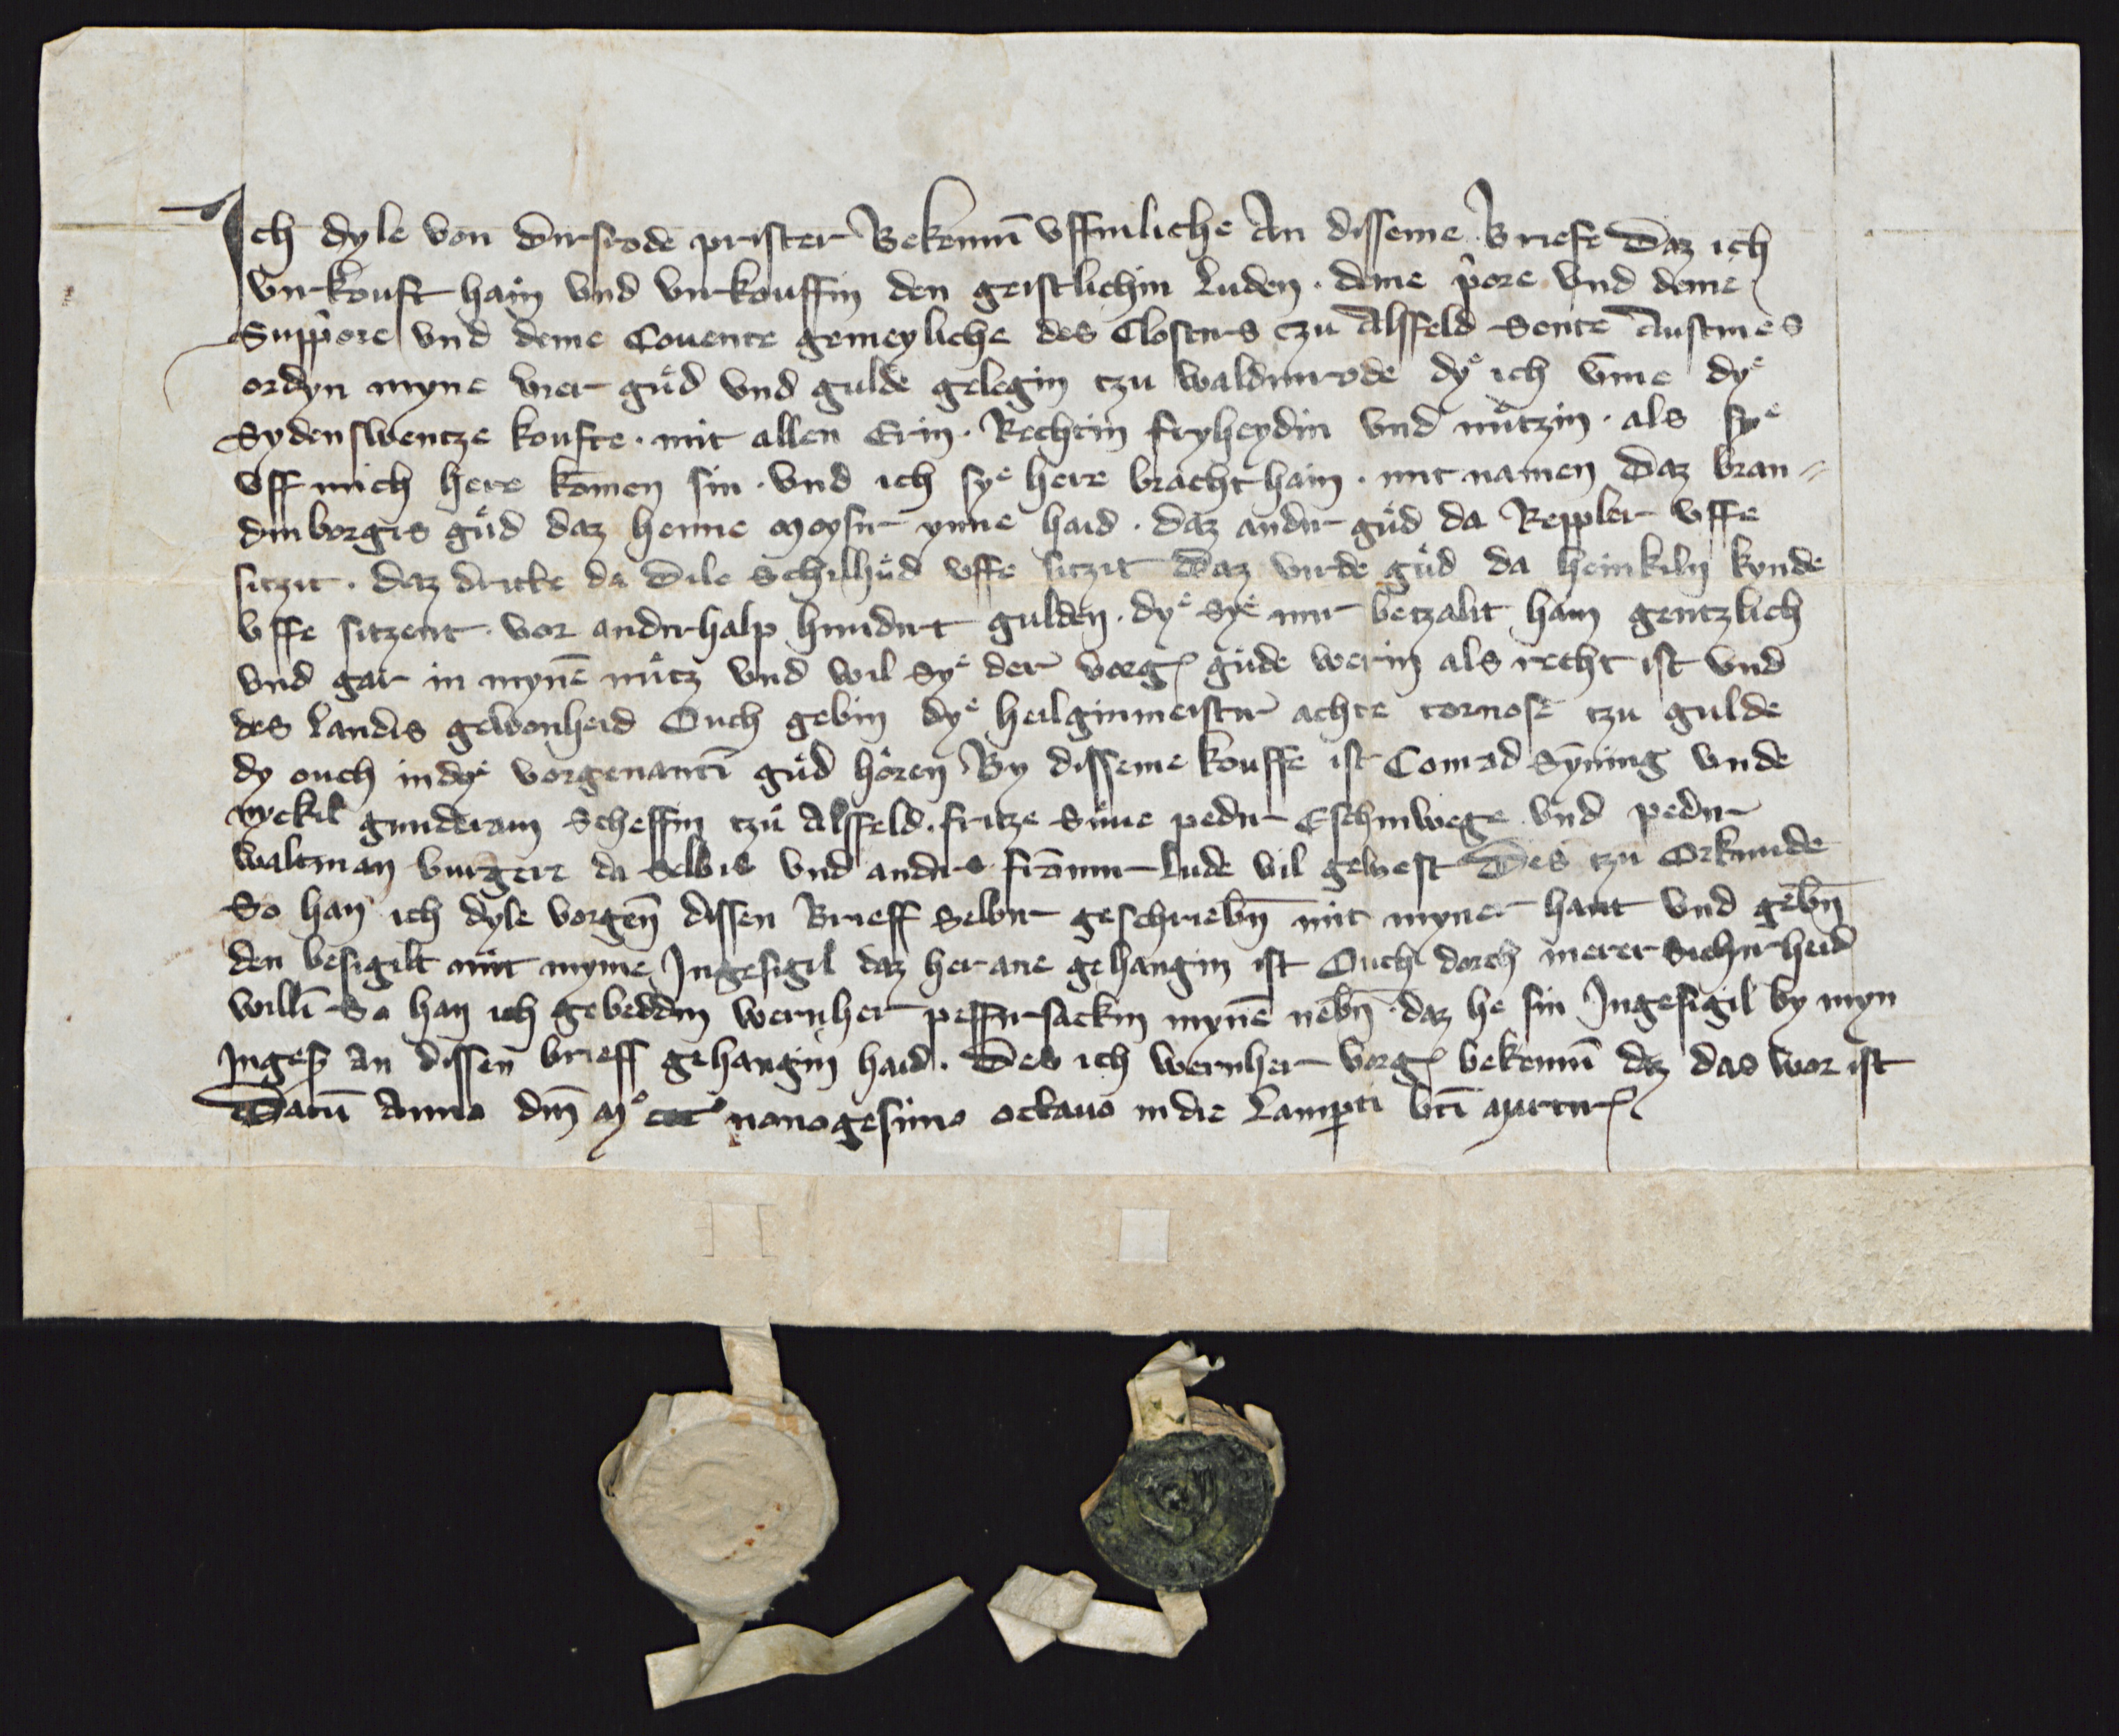 Ich dyle von dirsrode prister Bekenn̄ uffinliche An disseme Briefe Daz ich
virkouft hain vnd virkouffin den geistlichin Luden · deme p̉ore vnd deme
Supp̉ore vnd deme Couente gemeyliche des Closters tzu Alsfeld Sente Austines
ordyn myne vier gůd vnd gulde gelegin tzu waldinrode dyͤ ich vm̄e dyͤ
Sydenswentze koufte · mit allen Erin · Rechtin fryheydin vnd nůtzin · als syͤ
vff mich here kōmen sin · vnd ich syͤ here bracht hain · mit namen Daz bran //
dinborgis gůd daz henne moysir ynne haid · daz andir gůd da Reppler vffe
sitzit · daz dritte da Dile Schilhůd vffe sitzit Daz virde gůd da heinkiln kynde
vffe sitzent · vor andirhalp hundirt gulden · dyͤ Syͤ mir betzalit hain gentzlich
vnd gar in mynē nůtz vnd wil Syͤ der vorḡ gůde werin als recht ist vnd
des Landis gewonheid Ouch gebin dyͤ heilginmeistir achte tornose tzu gulde
dy ouch in dyͤ vorgenantī gůd hören · By disseme kouffe ist Conrad Synning vnde
nyckil gunderam Scheffin tzů Alsfeld · fritze Sůne pedir Eschinwege vnd pedir
waltman burgere da Selbis vnd andirs frōmir Lude vil gewest Des tzu Orkunde
So han ich dyle vorgen̄ dissen Brieff Selbir geschriebn̄ mit myner hant vnd gebn̄
den besigilt mit myme Ingesigil daz her ane gehangin ist Ouch dorch merer Sichirheid
willī So han ich gebeddin wernher peffirsackin mynē nebn̄ · daz he sin Ingesigil by myn
Inges̄ an dissen brieff gehangin haid · Des ich wernher vorḡ bekenn̄ daz das wor ist
Datū Anno dn̄i Mͦ cccͦ nonogesimo octauo in die Lamp̲ti bt̄i martir̄